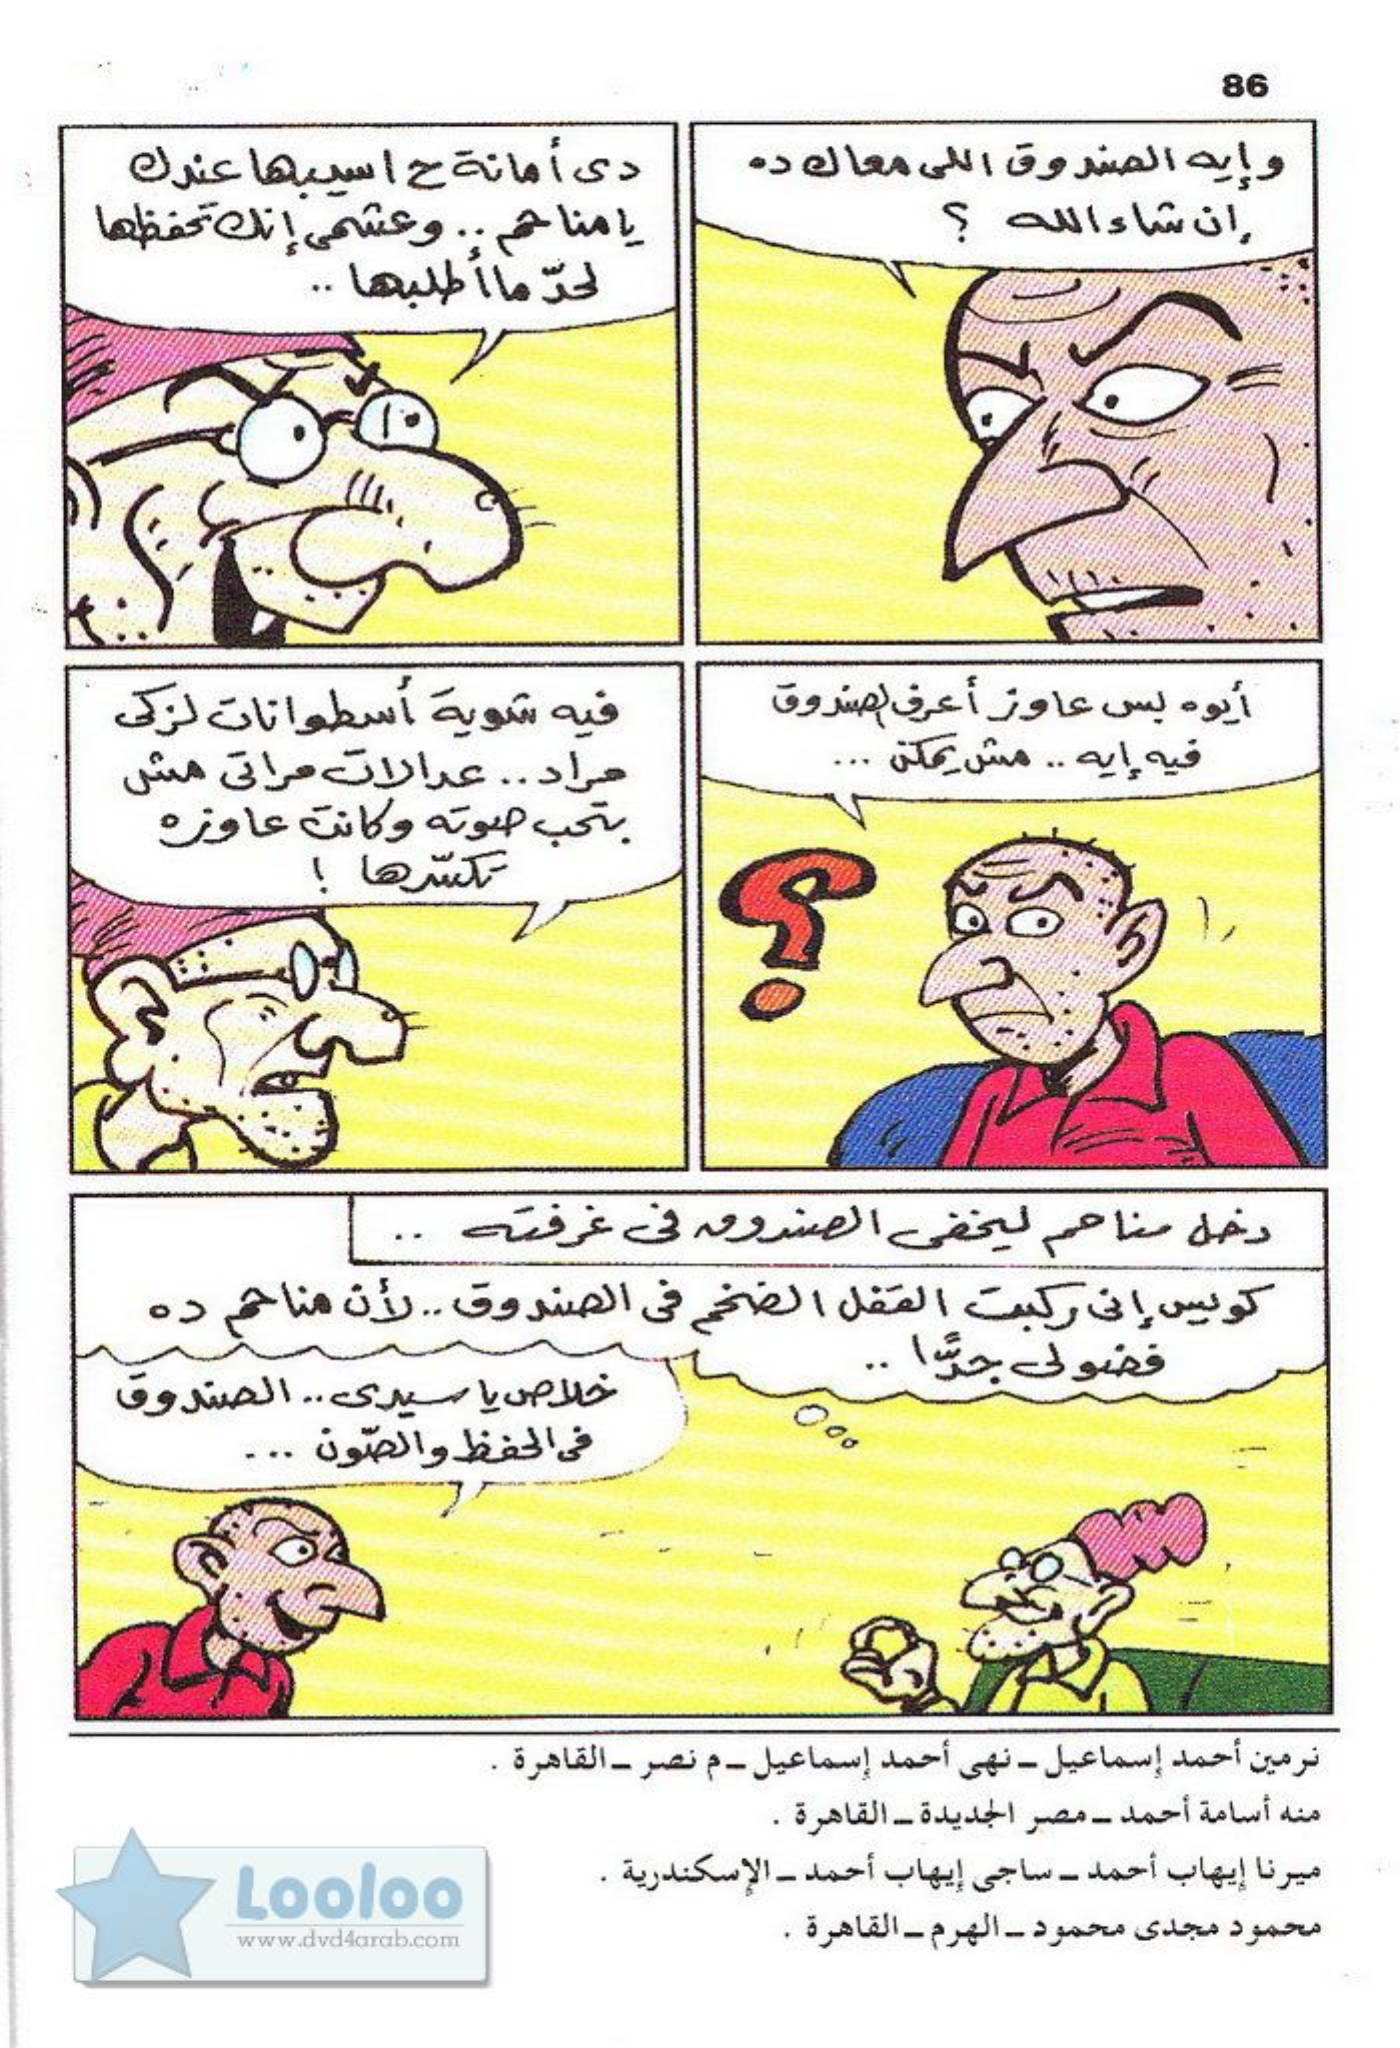 86
وإيه الصندوق اللى معاك ده
إن شاء الله ؟
دى أمانة ح اسيبها عندك
يا مناحم .. وعشمى إنك تحفظها
لحدّ ما أطلبها ..
أيوه بس عاوز أعرف الصندوق
فيه إيه .. مش يمكن ...
؟
فيه شوية أسطوانات لزكى
مراد .. عدالات مراتى مش
بتحب صوته وكانت عاوزه
تكسّرها !
دخل مناحم ليخفى الصندوق فى غرفته ..
كويس إنى ركبت القفل الضخم فى الصندوق .. لأن مناحم ده
فضولى جدًّا ..
خلاص يا سيدى .. الصندوق
فى الحفظ والصّون ...
نرمين أحمد إسماعيل ــ نهى أحمد إسماعيل ــ م نصر ــ القاهرة .
منه أسامة أحمد ــ مصر الجديدة ــ القاهرة .
ميرنا إيهاب أحمد ــ ساجى إيهاب أحمد ــ الإسكندرية .
محمود مجدى محمود ــ الهرم ــ القاهرة .
Looloo
www.dvd4arab.com